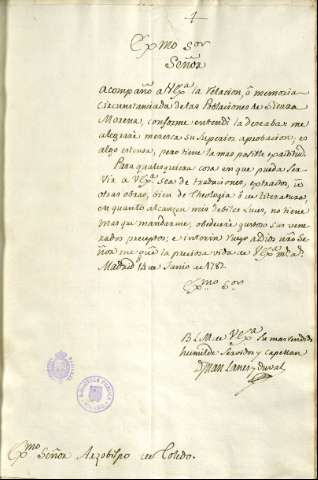 1
Exmo Sor
Señor
Acompaño a V Exa la relacion, ò memoria
circunstanciada de las Poblaciones de Sierra
Morena, conforme entendi la deseaba: me
alegrare merezca su superior aprobacion; es
algo extensa, pero tiene la mas posible exactitud.
Para qualesquiera cosa en que pueda ser-
vir a V Exa sea de traduciones, extractos, ù
otras obras, bien de Theologia ò de literatura,
en quanto alcancen mis debiles luces, no tiene
mas que mandarme, obedecerè gustoso sus vene-
rados preceptos; e interin ruego a Dios nro Se-
ñor me gue la preciosa vida de V Exa ms as
Madrid 14 de Junio de 1787.
Exmo Sor
B L M de V Exa su mas rendido
humilde Servidor y Capellan
Juan Lanes y Duval
Exmo Señor Arzobispo de Toledo.